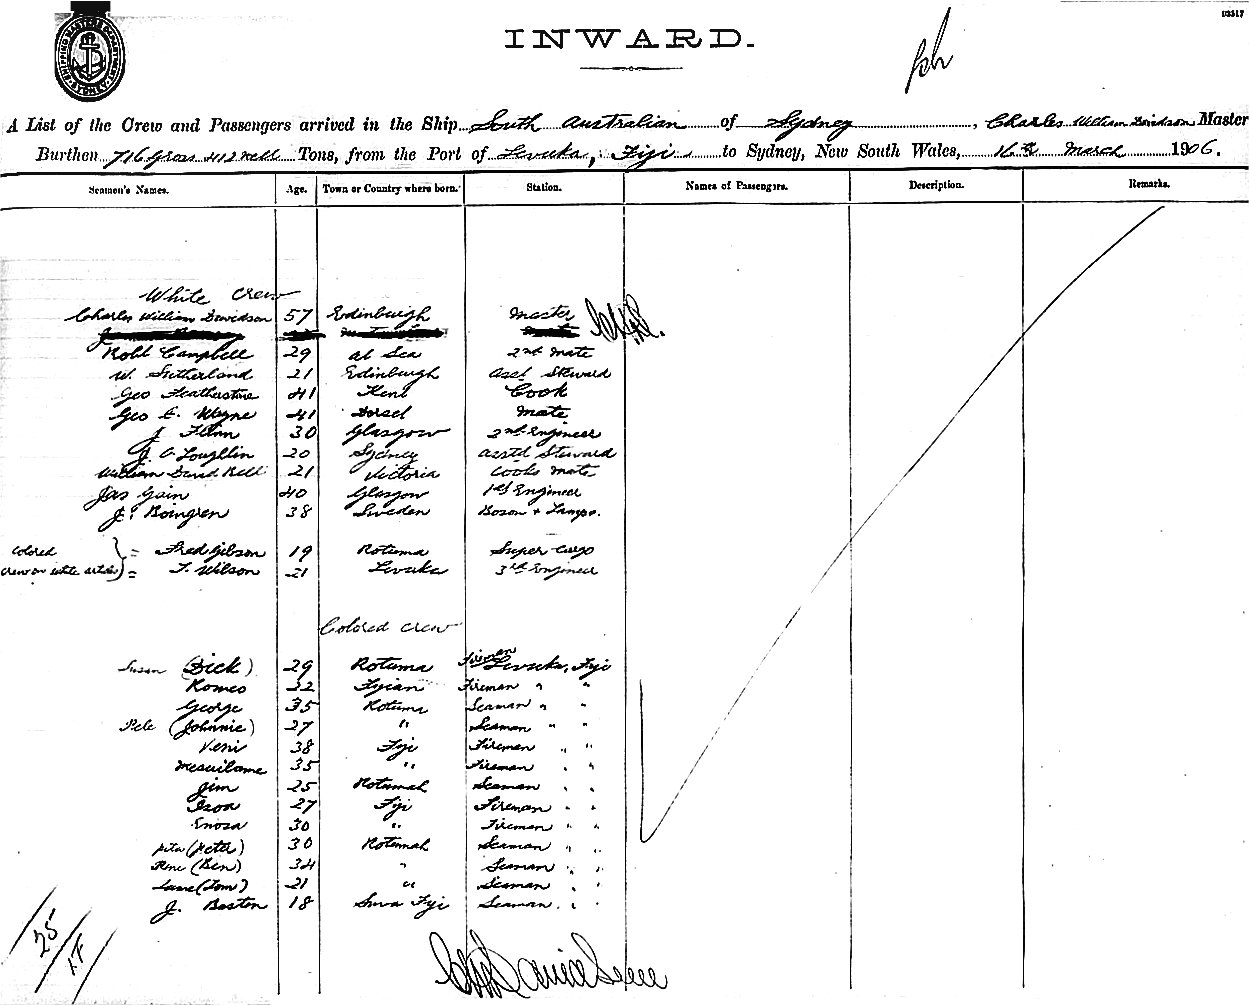 SHIPPING MASTERS DEPARTMENT SYDNEY
03517
INWARD.
A List of the Crew and Passengers arrived in the Ship South Australian of Sydney, Charles William Davidson Master
Burthen 716 Gross 412 nett Tons, from the Port of Levuka, Fiji to Sydney, New South Wales, 16th March 1906.
Seamen's Names. Age. Town or Country where born. Station. Names of Passengers. Description. Remarks.
White Crew
Charles William Davidson 57 Edinburgh Master
Robt Campbell 29 at Sea 2nd Mate
W. Sutherland 21 Edinburgh Asst Steward
Geo Featherstone 41 Kent Cook
Geo E. Wayne 41 Dorset Mate
J Flinn 30 Glasgow 2nd Engineer
J. O'Loughlin 20 Sydney Asstd Steward
William David Bell 21 Victoria Cooks Mate
Jas Gain 40 Glasgow 1st Engineer
J. Boingren 38 Sweden Boson + Lamps.
Colored = Fred Gibson 19 Rotuma Super Cargo
Crew on white articles = T. Wilson 21 Levuka 3rd Engineer
Colored Crew
Susan (Dick) 29 Rotuma Firemen Levuka, Fiji
Romeo 22 Fijian Fireman " "
George 35 Rotuma Seaman " "
Pele (Johnnie) 27 " Seaman " "
Veni 38 Fiji Fireman " "
Mesuilame 35 " Fireman " "
Jim 25 Rotumah Seaman " "
27 Fiji Fireman " "
Enosa 30 " Fireman " "
Pita (Peter) 30 Rotumah Seaman " "
(Ben) 34 " Seaman " "
(Tom) 21 " Seaman " "
J. Baston 18 Suva Fiji Seaman " "
25